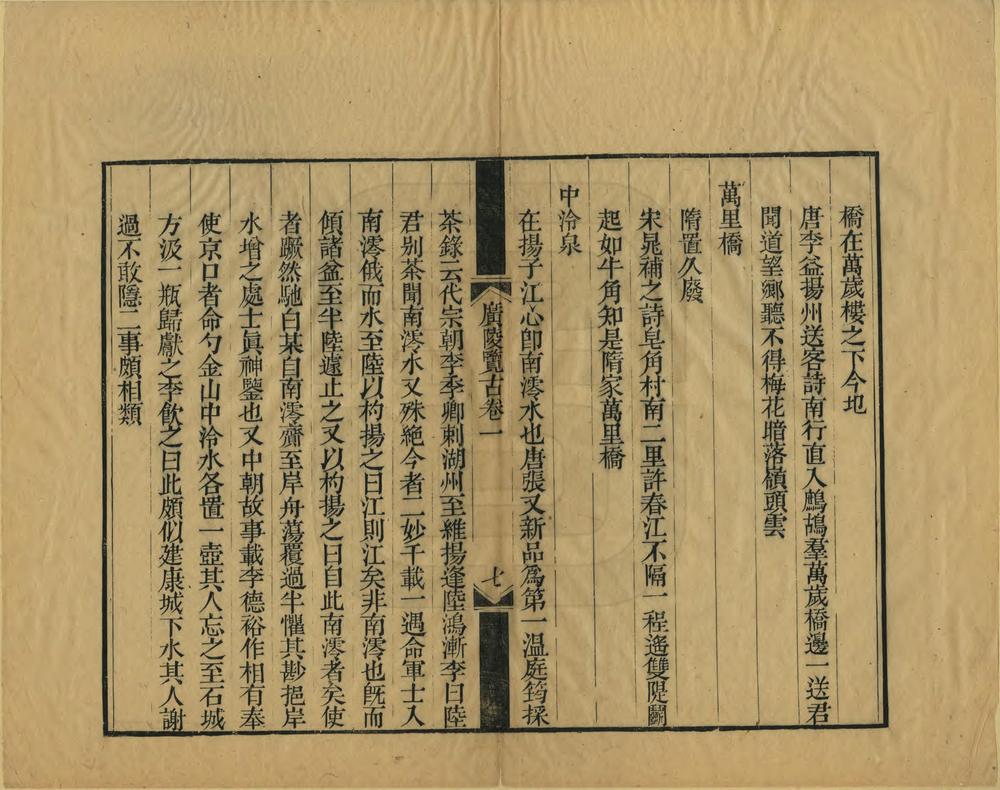 橋在萬歲樓之下今圮
唐李益揚州送客詩南行直入鷓鴣羣萬歲橋邊一送君
聞道望鄉聽不得梅花暗落嶺頭雲
萬里橋
隋置久廢
宋晁補之詩皂角村南二里許春江不隔一程遙雙隄鬭
起如牛角知是隋家萬里橋
中泠泉
在揚子江心卽南澪水也唐張又新品爲第一溫庭筠採
廣陵覽古卷一
七
茶錄云代宗朝李季卿刺湖州至維揚逢陸鴻漸李曰陸
君別茶聞南澪水又殊絕今者二妙千載一遇命軍士入
南澪俄而水至陸以杓揚之曰江則江矣非南澪也旣而
傾諸盆至半陸遽止之又以杓揚之曰自此南澪者矣使
者蹶然馳白某自南澪齎至岸舟蕩覆過半懼其尠挹岸
水增之處士眞神鑒也又中朝故事載李德裕作相有奉
使京口者命勺金山中泠水各置一壺其人忘之至石城
方汲一瓶歸獻之李飮之曰此頗似建康城下水其人謝
過不敢隱二事頗相類